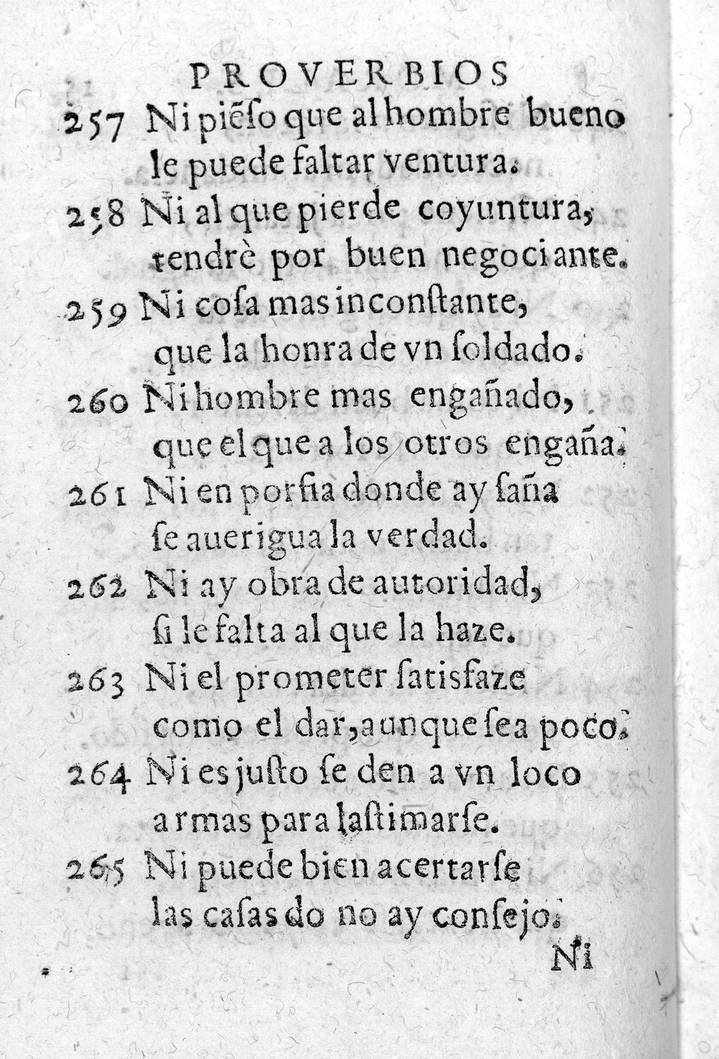 PROVERBIOS
257 Ni piẽſo que al hombre bueno
le puede faltar ventura.
258 Ni al que pierde coyuntura,
tendrè por buen negociante.
259 Ni coſa mas inconſtante,
que la honra de vn ſoldado.
260 Ni hombre mas engañado,
que el que a los otros engaña.
261 Ni en porfia donde ay ſaña
ſe auerigua la verdad.
262 Ni ay obra de autoridad,
ſi le falta al que la haze.
263 Ni el prometer ſatisfaze
como el dar, aunque ſea poco.
264 Ni es juſto ſe den a vn loco
armas para laſtimarſe.
265 Ni puede bien acertarſe
las caſas do no ay conſejo.
Ni